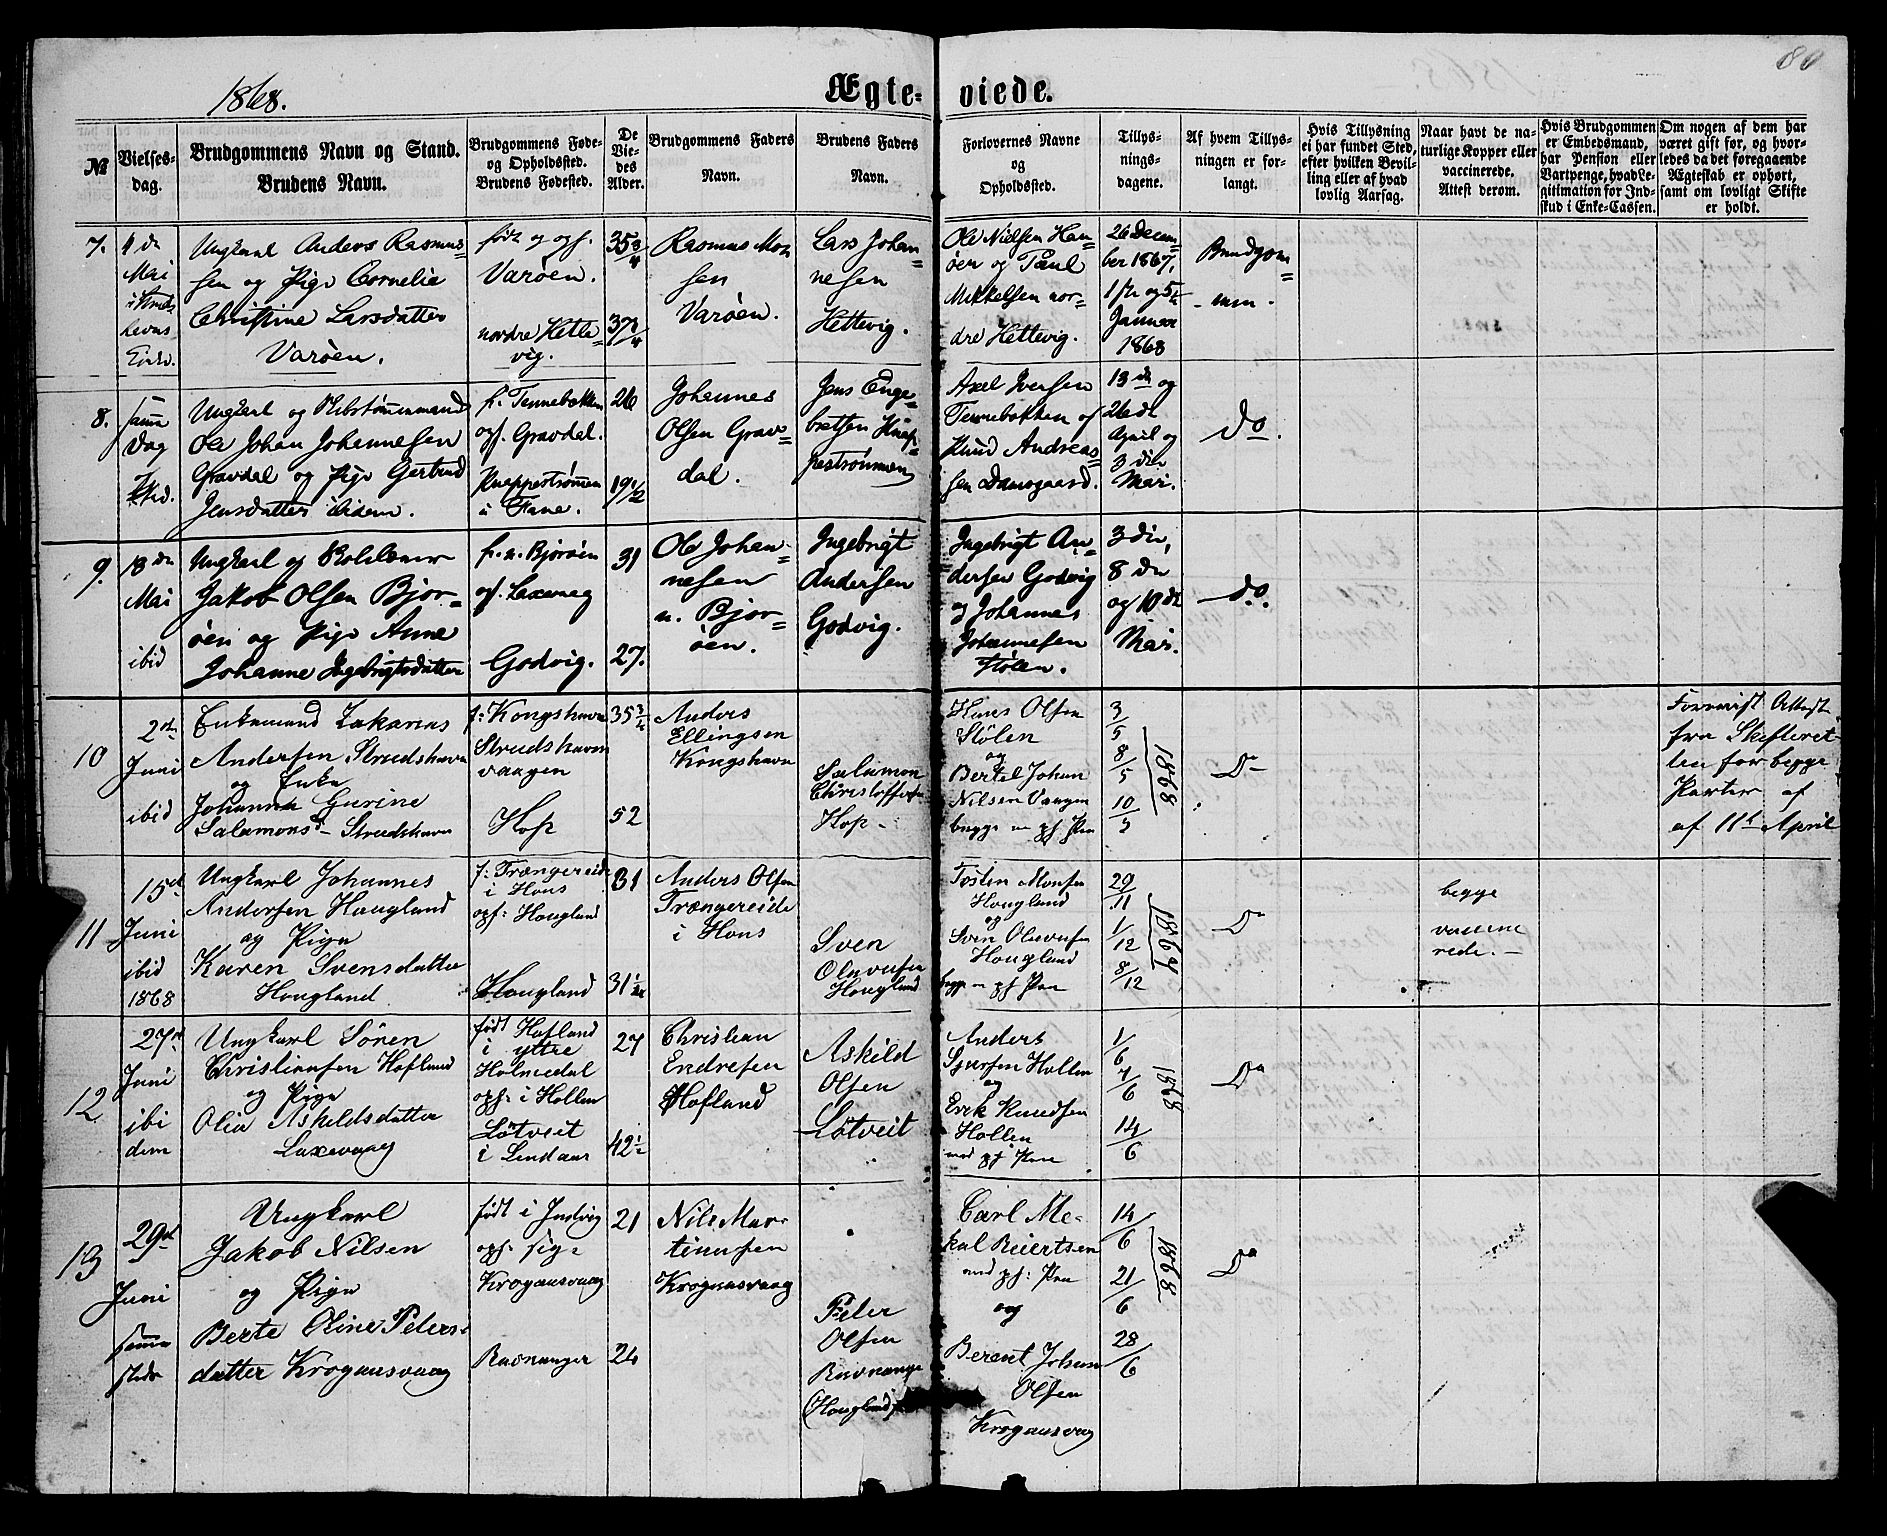 1868.
Ægteviede.
80
№
Vielses-
dag.
Brudgommens Navn og Stand.
Brudens Navn.
Brudgommens Føde-
og Opholdssted.
Brudens Fødested.
De
Vie-
des
Alder.
Brudgommens Faders
Navn.
Brudens Faders
Navn.
Forlovernes Navne
og
Opholdssted.
Tillys-
nings-
dagene.
Af hvem Tillys-
ningen er for-
langt.
Hvis Tillysning
ei har fundet Sted,
efter hvilken Bevil-
ling eller af hvad
lovlig Aarsag.
Naar havt de na-
turlige Kopper eller
vaccinerede.
Attest derom.
Hvis Brudgommen
er Embedsmand,
har Pension eller
Vartpenge, hvad Le-
gitimation for Ind-
skud i Enke-Cassen.
Om nogen af dem har
været gift før, og hvor-
ledes da det foregaaende
Ægteskab er ophørt,
samt om lovligt Skifte
er holdt.
7.
4 de
Mai
Ungkarl Anders Rasmus
sen og Pige Cornelia
Christine Larsdatter
Varöen.
født og opf.
Varöen.
nordre Hette-
vig.
35 3/4
37 3/4
Rasmus Mon
sen
Varöen.
Lars Johan-
nesen
Hettevig.
Ole Nielsen Han-
öen og Paul
Mikkelsen nor-
dre Hettevig.
26 Decem-
ber 1867,
1ste og 5te
Januar
1868
Brudgom-
men.
8.
samme
Dag
Ungkarl og Skibstømmermand
Ole Johan Johannesen
Gravdal og Pige Gertrud
Jensdatter ibidem.
f. Tennebekken
opf. Gravdal.
Knappestrømmen
i Fane.
26
19 1/2
Johannes
Olsen Grav-
dal.
Jens Enge-
bretsen Knap-
pestrømmen
Axel Iversen
Tennebekken og
Knud Andreas-
sen Damsgaard.
13 de og
26 de
April og
3 die
Mai.
do.
9.
18 de
Mai
ibid
Ungkarl og
Jakob Olsen Bjor-
öen og Pige Anne
Johanne Ingebrigtsdatter
f. n. Bjoröen
opf. Laxevaag
Godvig.
31
27.
Ole Johan-
nesen
n. Bjor-
öen.
Ingebrigt
Andersen
Godvig.
Ingebrigt An-
dersen Godvig
og Johannes
Johannesen
Stølen.
3 die,
8 de
og 10 de
Mai.
do.
10
2 den
Juni
ibid
Enkemand Zakarias
Andersen Strudshavn
og Enke
Johanna Gurine
Salamonsd Strudshavn
f: Kongshavn
Strudshavn
vaagen
Hop
35 3/4
52
Anders
Ellingsen
Kongshavn
Salamon
Christoffersen
Hop
Hans Olsen
Stølen
og
Bertel Johan
Nilsen Vaagen
3/5
8/5
10/5
1868
Do
Forevist Attest
fra Skifteret-
ten for begge
Parter af
af 11te April
11
15 d
Juni
ibid
1868
Ungkarl Johannes
Andersen Hougland
og Pige
Karen Svensdatter
Hougland
f: Trængereide
i Hous
opf: Hougland
Hougland
31
31 1/2
Anders Olsen
Trængereide
i Hous
Sven
Olavesen
Hougland
Tosten Monsen
Hougland
og
Sven Olavesen
Hougland
29/11
1/12
8/12
1867
Do
begge
vaccine
rede.
12
27 d
Juni
ibi
dem
Ungkarl Sören
Christiansen Hofland
og Pige
Olia Askildsdatter
Laxevaag
født Hofland
i yttre
Holmedal
opf: i Hollen
Løtveit
i Lindaas
27
42 1/2
Christian
Endresen
Hofland
Askild
Olsen
Løtveit
Anders
Sjursen Hollen
og
Erik Knudsen
Hollen
1/6
7/6
14/6
1868
Do
13
29 d
Juni
samme
sted
Ungkarl
Jakob Nilsen
og Pige
Berte Oline Peters-
datter Krogaasvaag
født i Indvig
opf:
Krogaasvaag
Ravnanger
21
26
Nils Mar-
tinusen
Krogaasvaag
Peter
Olsen
Ravnange
(Hougland)
Carl Me-
kal Reiertsen
og
Berent Johan
Olsen
Krogaasvaag
14/6
21/6
28/6
1868
Do